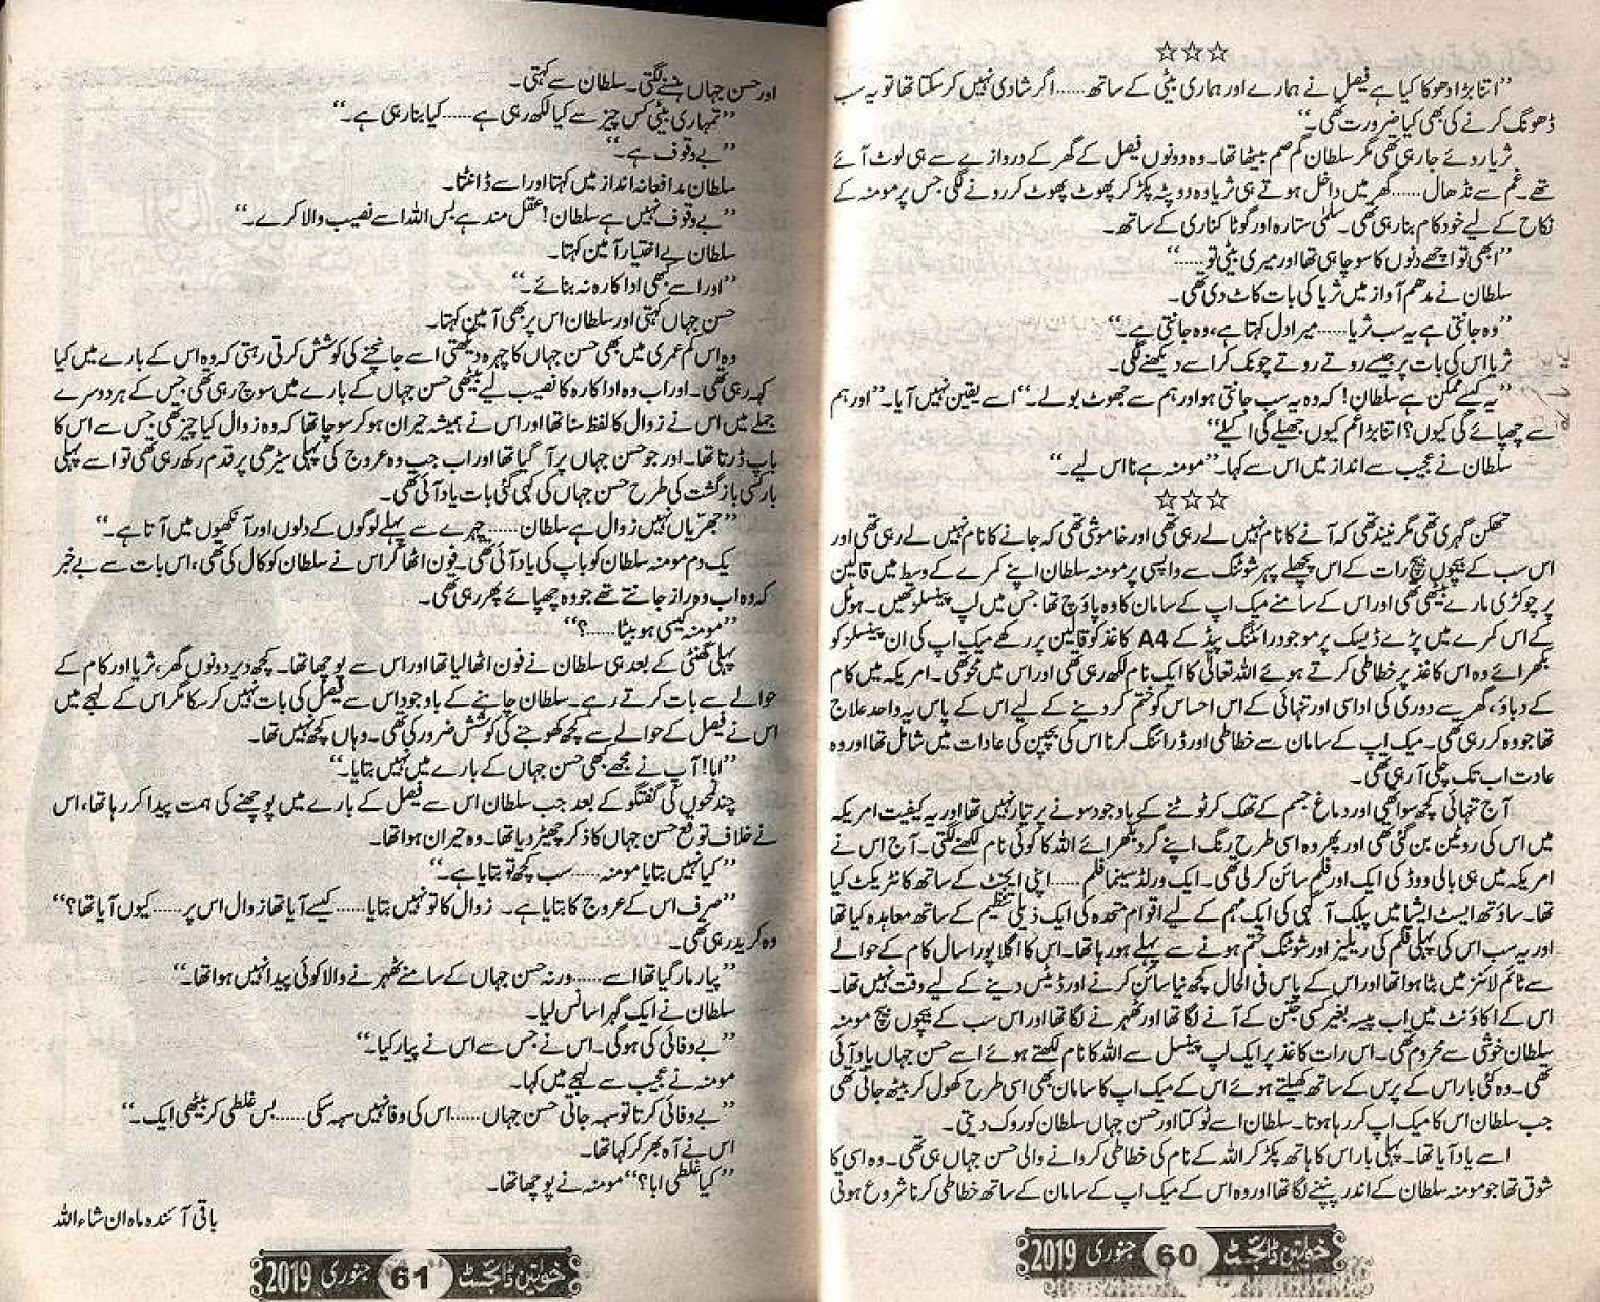 ☆☆☆
”اتنا بڑا دھوکا کیا ہے فیصل نے ہمارے اور ہماری بیٹی کے ساتھ...... اگر شادی نہیں کر سکتا تھا تو یہ سب
ڈھونگ کرنے کی بھی کیا ضرورت تھی۔“
ثریا روئے جا رہی تھی مگر سلطان گم صم بیٹھا تھا۔ وہ دونوں فیصل کے گھر کے دروازے سے ہی لوٹ آئے
تھے۔ غم سے نڈھال...... گھر میں داخل ہوتے ہی ثریا وہ دوپٹہ پکڑ کر پھوٹ پھوٹ کر رونے لگی جس پر مومنہ کے
نکاح کے لیے خود کام بنا رہی تھی۔ سلمٰی ستارہ اور گوٹا کناری کے ساتھ۔
”ابھی تو اچھے دنوں کا سوچا ہی تھا اور میری بیٹی تو......“
سلطان نے مدھم آواز میں ثریا کی بات کاٹ دی تھی۔
”وہ جانتی ہے یہ سب ثریا...... میرا دل کہتا ہے، وہ جانتی ہے۔“
ثریا اس کی بات پر جیسے روتے روتے چونک کر اسے دیکھنے لگی۔
”یہ کیسے ممکن ہے سلطان! کہ وہ یہ سب جانتی ہو اور ہم سے جھوٹ بولے۔“ اسے یقین نہیں آیا۔ ”اور ہم
سے چھپائے گی کیوں؟ اتنا بڑا غم کیوں جھیلے گی اکیلے“
سلطان نے عجیب سے انداز میں اس سے کہا۔ ”مومنہ ہے نا اس لیے۔“
☆☆☆
تھکن گہری تھی مگر نیند تھی کہ آنے کا نام نہیں لے رہی تھی اور خاموشی تھی کہ جانے کا نام نہیں لے رہی تھی اور
اس سب کے بیچوں بیچ رات کے اس پچھلے پہر شوٹنگ سے واپسی پر مومنہ سلطان اپنے کمرے کے وسط میں قالین
پر چوکڑی مارے بیٹھی تھی اور اس کے سامنے میک اپ کے سامان کا وہ پاؤچ تھا جس میں لپ پینسلز تھیں۔ ہوٹل
کے اس کمرے میں پڑے ڈیسک پر موجود رائٹنگ پیڈ کے A4 کاغذ کو قالین پر رکھے میک اپ کی ان پینسلز کو
بکھرائے وہ اس کاغذ پر خطاطی کرتے ہوئے اللہ تعالیٰ کا ایک نام لکھ رہی تھی اور اس میں محو تھی۔ امریکہ میں کام
کے دباؤ، گھر سے دوری کی اداسی اور تنہائی کے اس احساس کو ختم کر دینے کے لیے اس کے پاس یہ واحد علاج
تھا جو وہ کر رہی تھی۔ میک اپ کے سامان سے خطاطی اور ڈرائنگ کرنا اس کی بچپن کی عادات میں شامل تھا اور وہ
عادت اب تک چلی آ رہی تھی۔
آج تنہائی کچھ سوا تھی اور دماغ جسم کے تھک کر ٹوٹنے کے باوجود سونے پر تیار نہیں تھا اور یہ کیفیت امریکہ
میں اس کی روٹین بن گئی تھی اور پھر وہ اسی طرح رنگ اپنے گرد بکھرائے اللہ کا کوئی نام لکھنے لگتی۔ آج اس نے
امریکہ میں ہی ہالی ووڈ کی ایک اور فلم سائن کر لی تھی۔ ایک ورلڈ سینما فلم...... اپنی ایجنٹ کے ساتھ کانٹریکٹ کیا
تھا۔ ساؤتھ ایسٹ ایشیا میں پبلک آگہی کی ایک مہم کے لیے اقوام متحدہ کی ایک ذیلی تنظیم کے ساتھ معاہدہ کیا تھا
اور یہ سب اس کی پہلی فلم کی ریلیز اور شوٹنگ ختم ہونے سے پہلے ہو رہا تھا۔ اس کا اگلا پورا سال کام کے حوالے
سے ٹائم لائنز میں بٹا ہوا تھا اور اس کے پاس فی الحال کچھ نیا سائن کرنے اور ڈیٹس دینے کے لیے وقت نہیں تھا۔
اس کے اکاؤنٹ میں اب پیسہ بغیر کسی جتن کے آنے لگا تھا اور ٹھہرنے لگا تھا اور اس سب کے بیچوں بیچ مومنہ
سلطان خوشی سے محروم تھی۔ اس رات کاغذ پر ایک لپ پینسل سے اللہ کا نام لکھتے ہوئے اسے حسن جہاں یاد آئی
تھی۔ وہ کئی بار اس کے پرس کے ساتھ کھیلتے ہوئے اس کے میک اپ کا سامان بھی اسی طرح کھول کر بیٹھ جاتی تھی
جب سلطان اس کا میک اپ کر رہا ہوتا۔ سلطان اسے ٹوکتا اور حسن جہاں سلطان کو روک دیتی۔
اسے یاد آیا تھا۔ پہلی بار اس کا ہاتھ پکڑ کر اللہ کے نام کی خطاطی کروانے والی حسن جہاں ہی تھی۔ وہ اسی کا
شوق تھا جو مومنہ سلطان کے اندر پنپنے لگا تھا اور وہ اس کے میک اپ کے سامان کے ساتھ خطاطی کرنا شروع ہوتی
خواتین ڈائجسٹ 60 جنوری 2019
اور حسن جہاں ہنسنے لگتی۔ سلطان سے کہتی۔
”تمہاری بیٹی کس چیز سے کیا لکھ رہی ہے...... کیا بنا رہی ہے۔“
”بے وقوف ہے۔“
سلطان مدافعانہ انداز میں کہتا اور اسے ڈانٹتا۔
”بے وقوف نہیں ہے سلطان! عقل مند ہے بس اللہ اسے نصیب والا کرے۔“
سلطان بے اختیار آمین کہتا۔
”اور اسے کبھی اداکارہ نہ بنائے۔“
حسن جہاں کہتی اور سلطان اس پر بھی آمین کہتا۔
وہ اس کم عمری میں بھی حسن جہاں کا چہرہ دیکھتی اسے جانچنے کی کوشش کرتی رہتی کہ وہ اس کے بارے میں کیا
کہہ رہی تھی۔ اور اب وہ اداکارہ کا نصیب لیے بیٹھی حسن جہاں کے بارے میں سوچ رہی تھی جس کے ہر دوسرے
جملے میں اس نے زوال کا لفظ سنا تھا اور اس نے ہمیشہ حیران ہو کر سوچا تھا کہ وہ زوال کیا چیز تھی جس سے اس کا
باپ ڈرتا تھا۔ اور جو حسن جہاں پر آ گیا تھا اور اب جب وہ عروج کی پہلی سیڑھی پر قدم رکھ رہی تھی تو اسے پہلی
بار کسی بازگشت کی طرح حسن جہاں کی کہی گئی بات یاد آئی تھی۔
”جھریاں نہیں زوال ہے سلطان...... چہرے سے پہلے لوگوں کے دلوں اور آنکھوں میں آتا ہے۔“
یک دم مومنہ سلطان کو باپ کی یاد آئی تھی۔ فون اٹھا کر اس نے سلطان کو کال کی تھی، اس بات سے بے خبر
کہ وہ اب وہ راز جانتے تھے جو وہ چھپائے پھر رہی تھی۔
”مومنہ کیسی ہو بیٹا......؟“
پہلی گھنٹی کے بعد ہی سلطان نے فون اٹھا لیا تھا اور اس سے پوچھا تھا۔ کچھ دیر دونوں گھر، ثریا اور کام کے
حوالے سے بات کرتے رہے۔ سلطان چاہنے کے باوجود اس سے فیصل کی بات نہیں کر سکا مگر اس کے لہجے میں
اس نے فیصل کے حوالے سے کچھ کھوجنے کی کوشش ضرور کی تھی۔ وہاں کچھ نہیں تھا۔
”ابا! آپ نے مجھے کبھی حسن جہاں کے بارے میں نہیں بتایا۔“
چند لمحوں کی گفتگو کے بعد جب سلطان اس سے فیصل کے بارے میں پوچھنے کی ہمت پیدا کر رہا تھا، اس
نے خلاف توقع حسن جہاں کا ذکر چھیڑ دیا تھا۔ وہ حیران ہوا تھا۔
”کیا نہیں بتایا مومنہ...... سب کچھ تو بتایا ہے۔“
”صرف اس کے عروج کا بتایا ہے۔ زوال کا تو نہیں بتایا...... کیسے آیا تھا زوال اس پر...... کیوں آیا تھا؟“
وہ کرید رہی تھی۔
”پیار مار گیا تھا اسے...... ورنہ حسن جہاں کے سامنے ٹھہرنے والا کوئی پیدا نہیں ہوا تھا۔“
سلطان نے ایک گہرا سانس لیا۔
”بے وفائی کی ہو گی۔ اس نے جس سے اس نے پیار کیا۔“
مومنہ نے عجیب سے لہجے میں کہا۔
”بے وفائی کرتا تو سہہ جاتی حسن جہاں...... اس کی وفا نہیں سہہ سکی...... بس غلطی کر بیٹھی ایک۔“
اس نے آہ بھر کر کہا تھا۔
”کیا غلطی ابا؟“ مومنہ نے پوچھا تھا۔
باقی آئندہ ماہ ان شاء اللہ
خواتین ڈائجسٹ 61 جنوری 2019